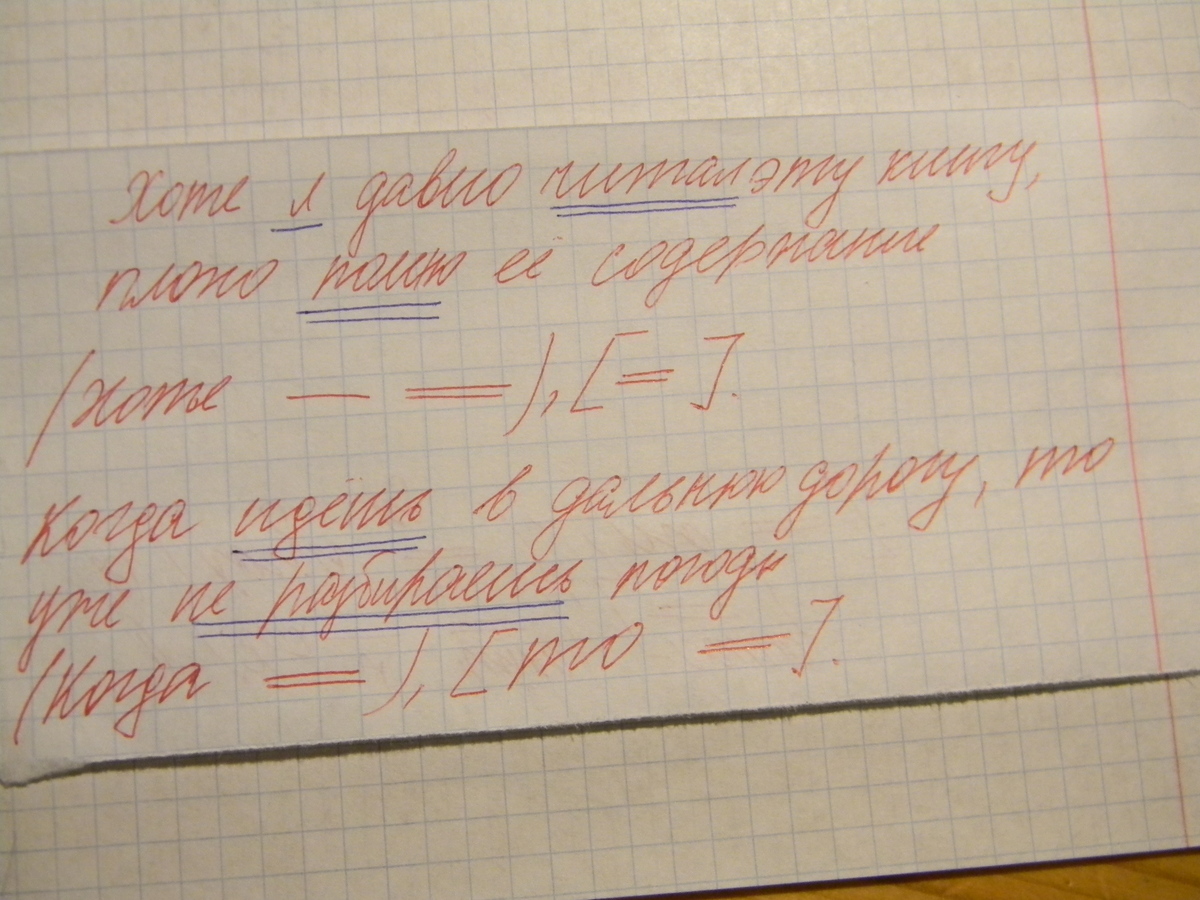 Хоте я давно читал эту книгу,
плохо помню её содержание
(хотя — ═), [═].
Когда идёшь в дальнюю дорогу, то
уже не разбираешь погоды
(Когда ═), [то ═].